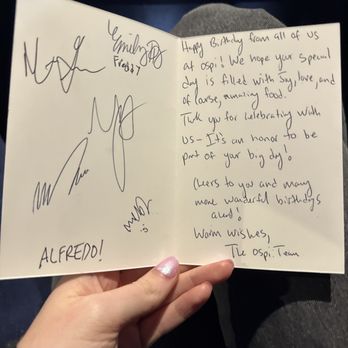 Emily
Freddy
ALFREDO!
Happy Birthday from all of us
at ospi! We hope your special
day is filled with Joy, love, and
of course, amazing food.
Thank you for celebrating with
us - It's an honor to be
part of your big day!
Cheers to you and many
more wonderful birthdays
ahead!
Warm wishes,
The ospi Team